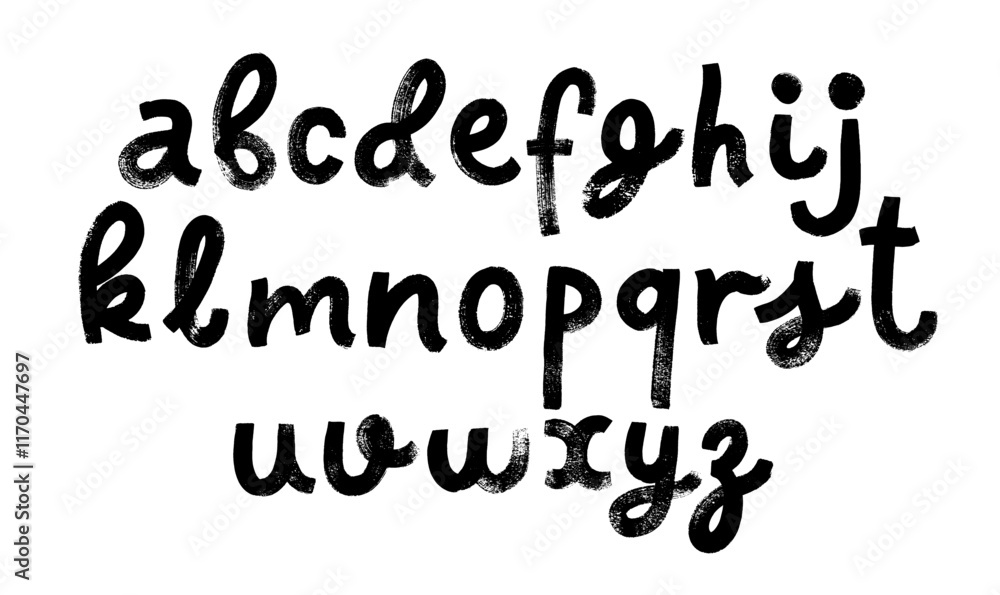 abcdefghij
klmnopqrst
uvwxyz
Adobe Stock | #1170447697